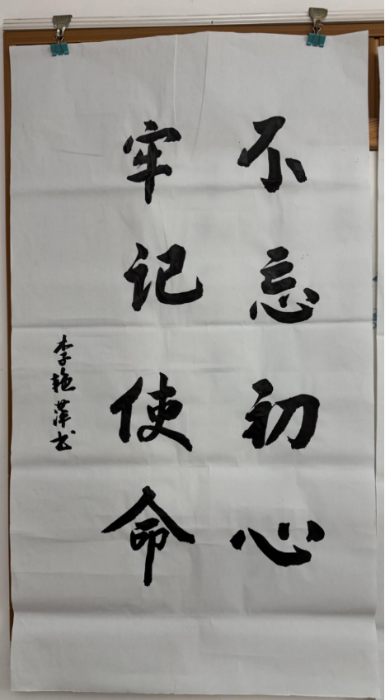 不忘初心
牢记使命
李艳萍书